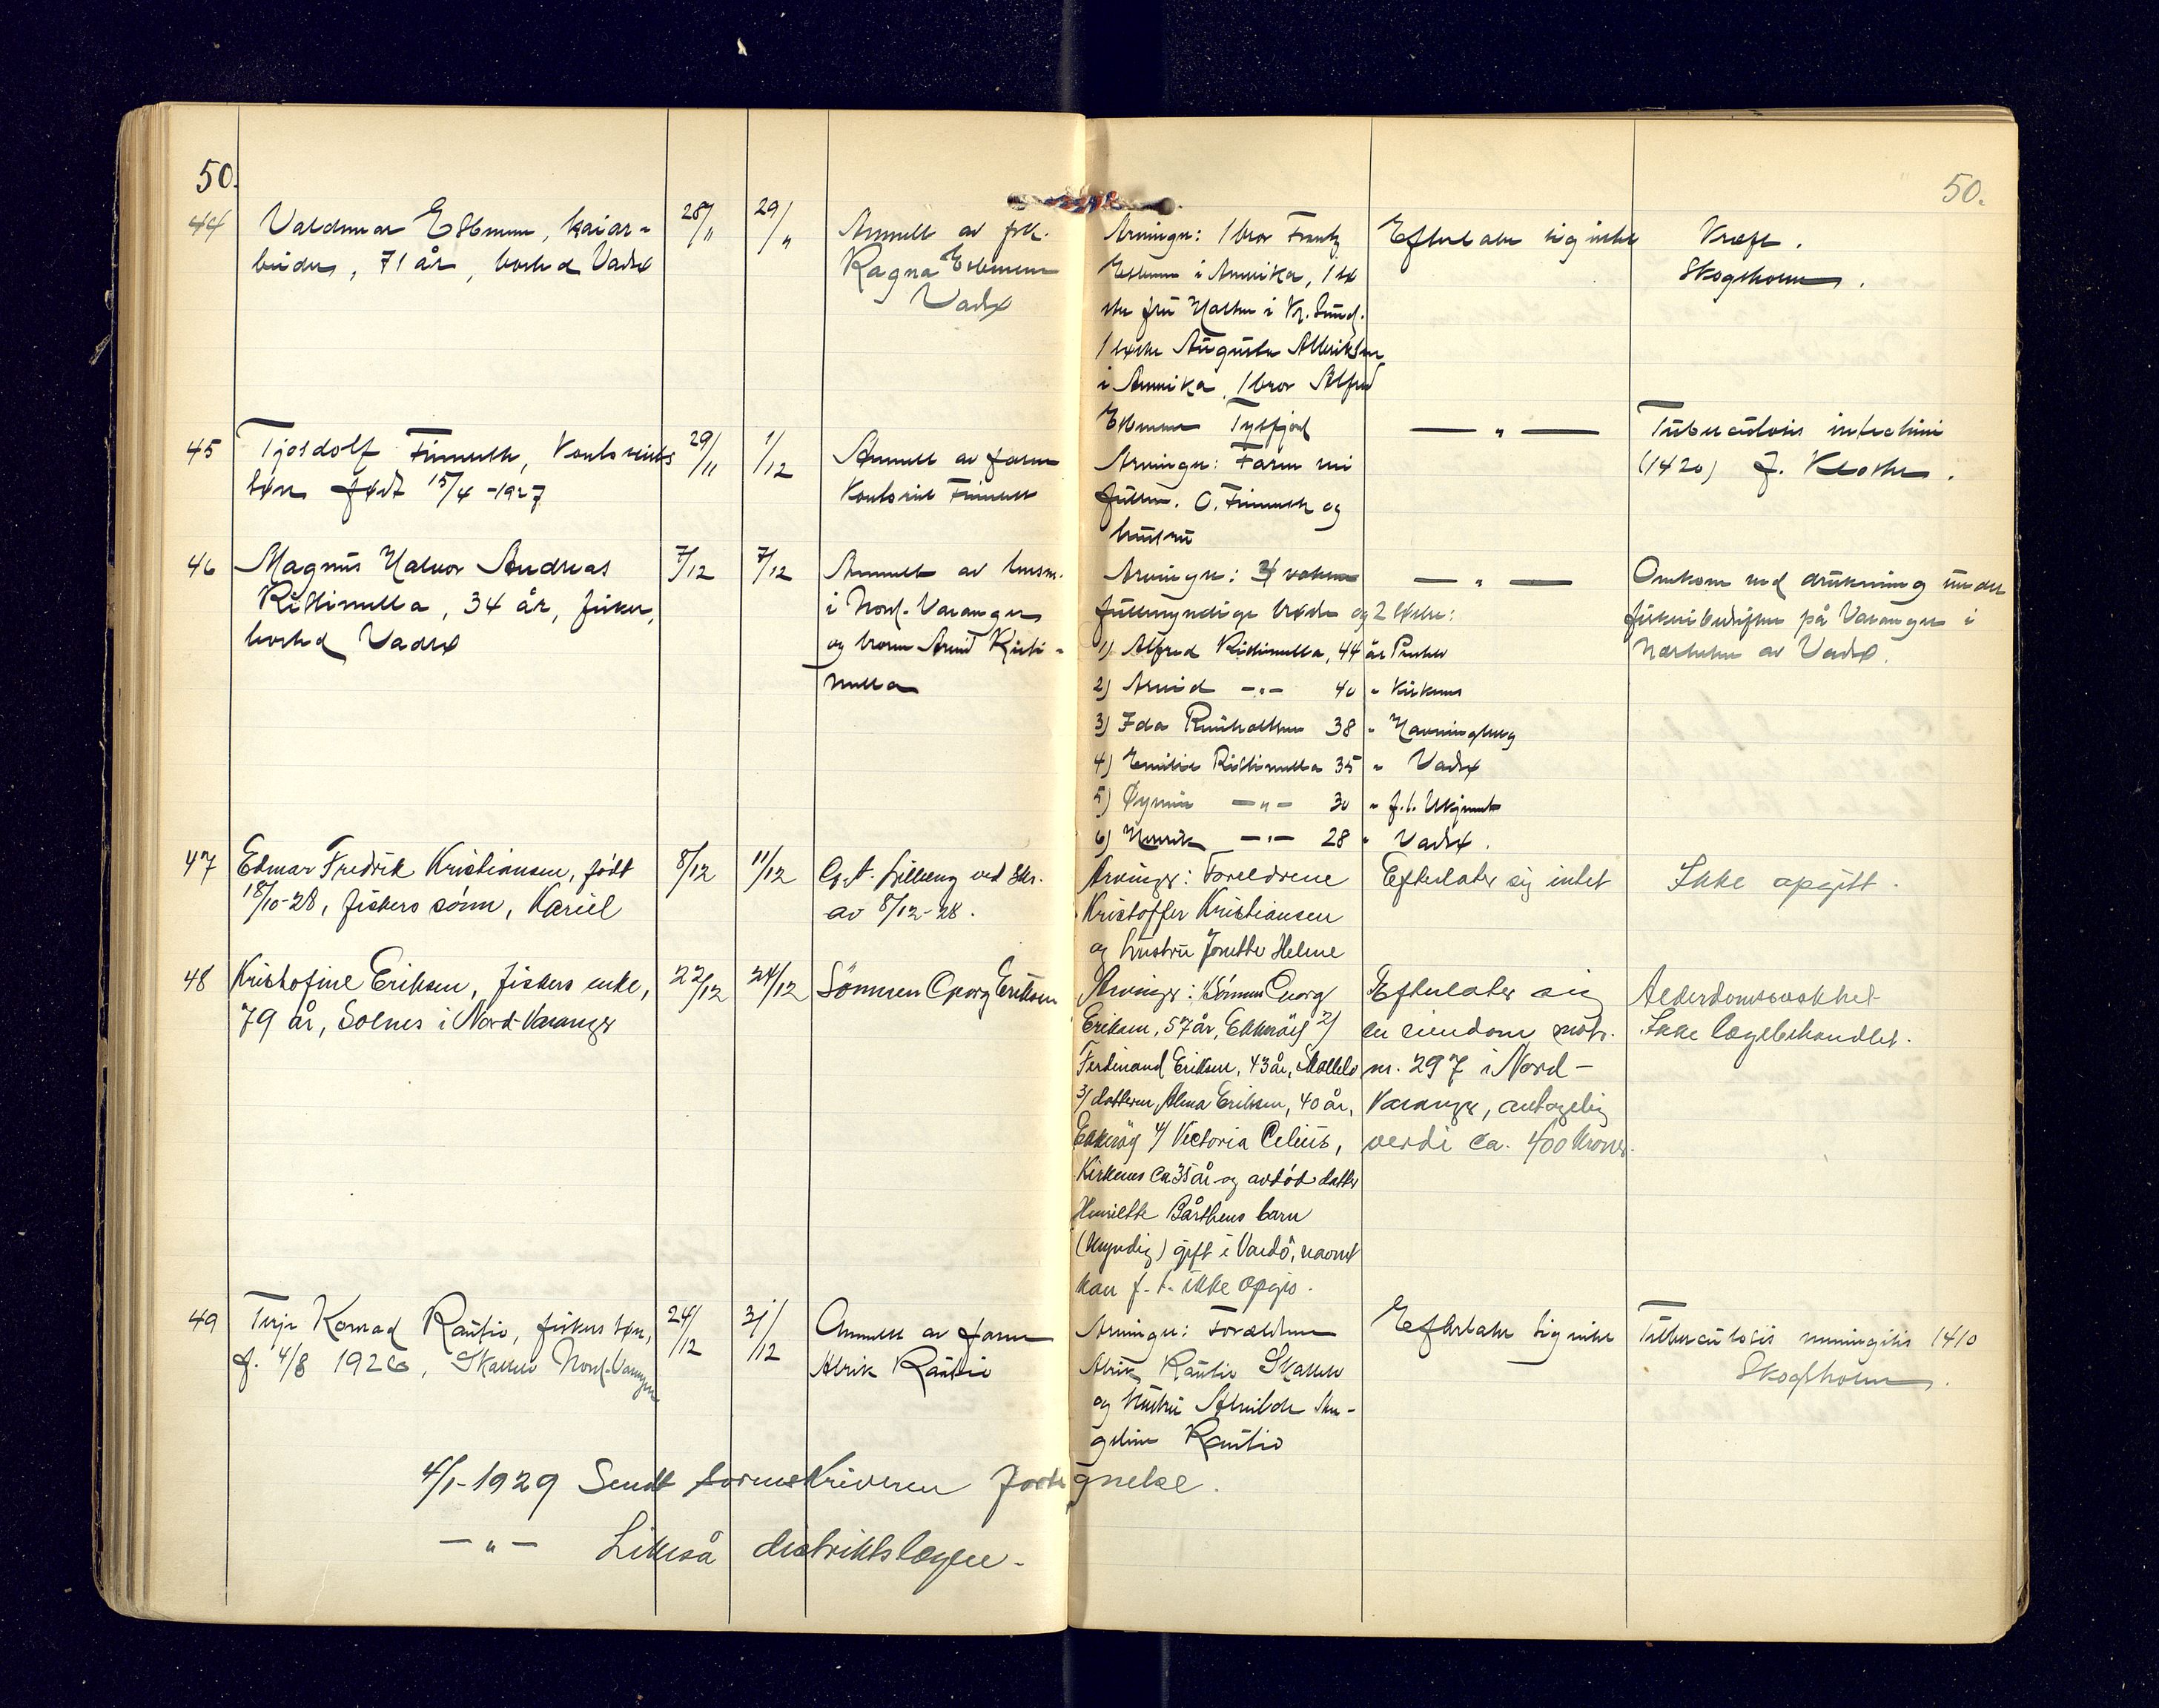 50.
50.
44
Valdemar Esbensen, kaiar-
beider, 71 år, bosted Vadsø
28/11
29/"
Anmeldt av frk.
Ragna Esbensen
Vadsø
Arvinger: 1 bror Frantz
Esbensen i Amerika, 1 sø
ster fru i Kr. Sund.
1 søster Augusta
i Amerika, 1 bror Alfred
Esbensen Tysfjord
Efterlater sig intet
Kræft.
Skogsholm.
45
Tjostolf, Kontorists
søn født 15/4-1927
29/11
1/12
Anmeldt av faren
Kontorist
Arvinger: Faren
O. og
hustru
— " —
Tuberculosis intestini
(1420) J. Kloster.
46
Magnus Halvor Andreas
Ristimella, 34 år, fisker,
bosted Vadsø
7/12
7/12
Anmeldt av lensm.
i Nord-Varanger
og broren Arvid Risti-
mella
Arvinger: 4 voksne
fuldmyndige brødre og 2 søstre:
1) Alfred Ristimella, 44 år
2) Arvid -"- 40 " Kirkenes
3) Ida 38 " Havningberg
4) Emilie Ristimella 35 " Vadsø
5) -"- 30 " f.t. Ukjendt
6) Henrik -"- 28 " Vadsø.
— " —
Omkom ved drukning under
fiskeribedriften på Varanger i
nærheten av Vadsø.
47
Edmar Fredrik Kristiansen, født
18/10-28, fiskers sønn, Kariel
8/12
11/12
O. A. Lilleeng ved skr.
av 8/12-28.
Arvinger: Foreldrene
Kristoffer Kristiansen
og hustru Jonette Helene
Efterlater sig intet
Ikke opgitt.
48
Kristofine Eriksen, fiskers enke,
79 år, Solnes i Nord-Varanger
22/12
24/12
Sønnen Georg Eriksen
Arvinger: Sønnen Georg
Eriksen, 57 år, Ekkerøy 2/
Ferdinand Eriksen, 43 år, Skallelv
3/ datteren Alma Eriksen, 40 år,
Ekkerøy 4/ Victoria Celius,
Kirkenes ca 35 år og avdød datter
Henriette Bårthens barn
(Myndig) gift i Vardø, navnet
kan f. t. ikke opgis.
Efterlater sig
en eiendom matr.
nr. 297 i Nord-
Varanger, antagelig
verdi ca. 400 kroner.
Alderdomssvakhet
Ikke lægebehandlet.
49
Terje Konrad Rautio, fiskers søn,
f. 4/8 1926, Skallelv Nord-Varanger
24/12
31/12
Anmeldt av faren
Alrik Rautio
Arvinger: Forældrene
Alrik Rautio Skallelv
og hustru
Rautio
Efterlater sig intet
Tuberculosis meningitis 1410
Skogsholm.
4/1-1929 Sendt sorenskriveren fortegnelse.
— " — Likeså distriktslægen.